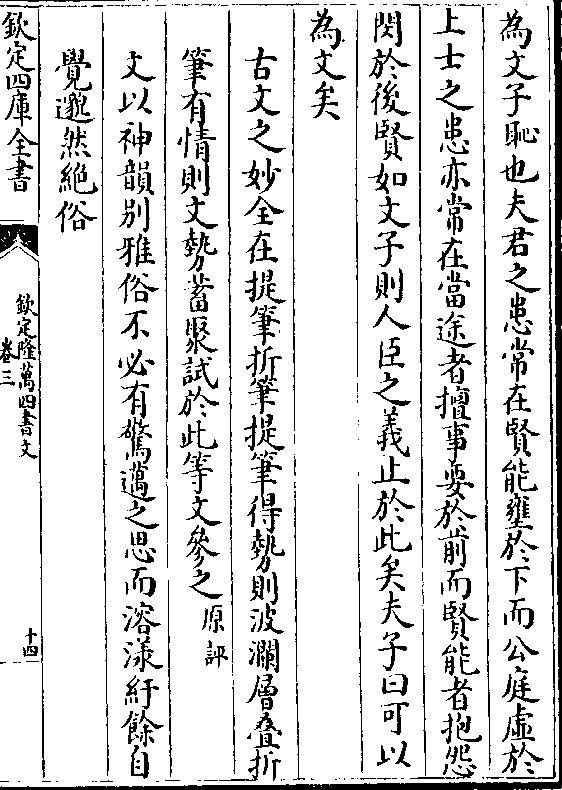 為文子恥也夫君之患常在賢能壅於下而公庭虛於
上士之患亦常在當途者擅事要於前而賢能者抱怨
閔於後賢如文子則人臣之義止於此矣夫子曰可以
為文矣
古文之妙全在提筆折筆提筆得勢則波瀾層叠折
筆有情則文勢蓄聚試於此等文參之原評
文以神韻别雅俗不必有驚邁之思而溶漾紆餘自
覺邈然絶俗
欽定四庫全書
欽定隆萬四書文
卷三
十四